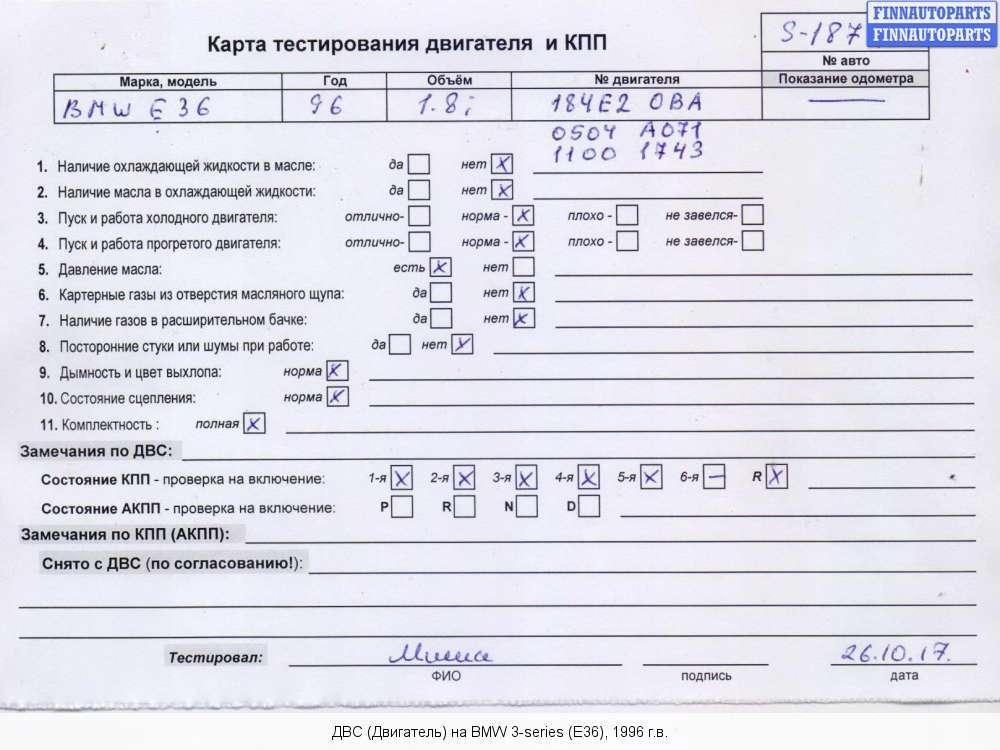 FINNAUTOPARTS
FINNAUTOPARTS
S-187
Карта тестирования двигателя и КПП
№ авто
Марка, модель Год Объём № двигателя Показание одометра
BMW E 36 96 1.8i 184E2 OBA —
0504 A071
1100 1743
1. Наличие охлаждающей жидкости в масле: да нет X
2. Наличие масла в охлаждающей жидкости: да нет X
3. Пуск и работа холодного двигателя: отлично- норма - X плохо - не завелся-
4. Пуск и работа прогретого двигателя: отлично- норма - X плохо - не завелся-
5. Давление масла: есть X нет
6. Картерные газы из отверстия масляного щупа: да нет X
7. Наличие газов в расширительном бачке: да нет X
8. Посторонние стуки или шумы при работе: да нет X
9. Дымность и цвет выхлопа: норма X
10. Состояние сцепления: норма X
11. Комплектность : полная X
Замечания по ДВС:
Состояние КПП - проверка на включение: 1-я X 2-я X 3-я X 4-я X 5-я X 6-я — R X
Состояние АКПП - проверка на включение: P R N D
Замечания по КПП (АКПП):
Снято с ДВС (по согласованию!):
Тестировал: Миша 26.10.17.
ФИО подпись дата
ДВС (Двигатель) на BMW 3-series (E36), 1996 г.в.